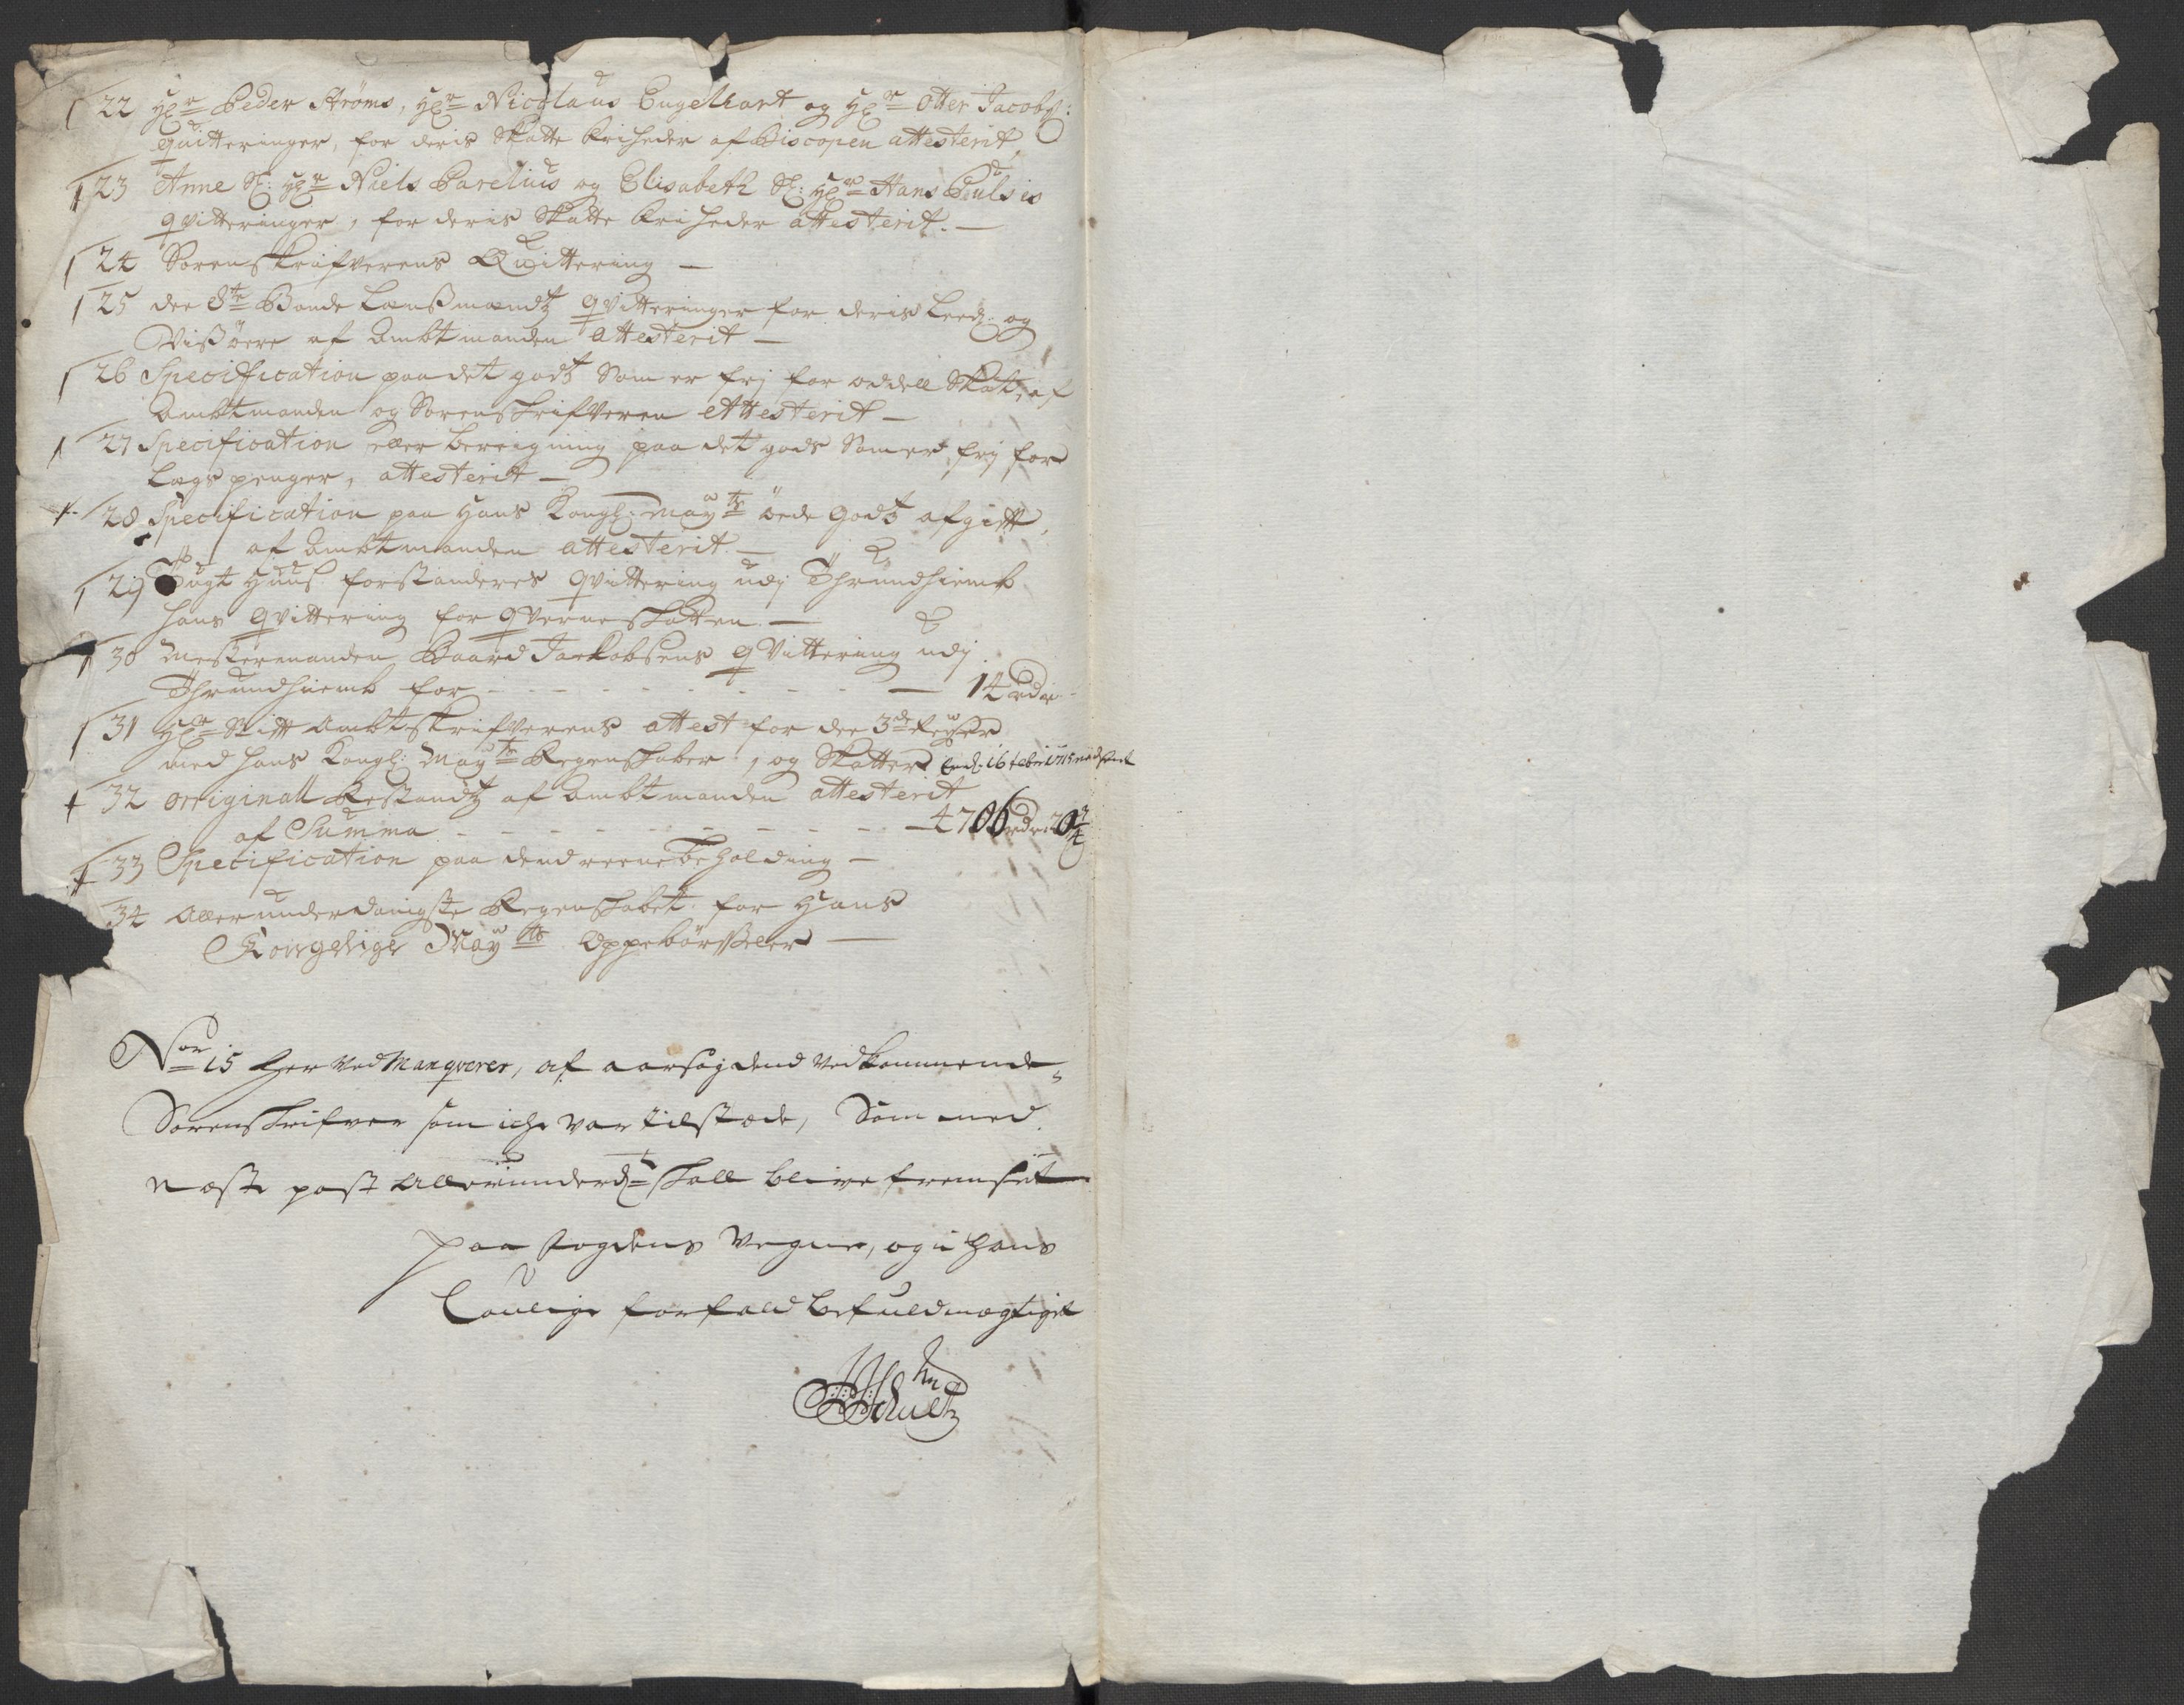 22 Hr Peder Ströms, Hr Nicolaus Engelhart og Hr Otter Jacobs:
quitteringer, for deris Skatte friheder af Biscopen attesterit,
23 Anne Sl: Hr Niels Parelius og Elisabeth Sl: Hr Hans Puls is
qvitteringer, for deris Skatte friheder attesterit. —
24 Sorenskrifverens Quittering —
25 dee 8te Bonde Lensmændz qvitteringer for deris Leed: og
Vissöere af Ambtmanden attesterit —
26 Specification paa det godz Som er frj for oddell Skatt, af
Ambtmanden og Sorenskrifveren Attesterit —
27 Specification eller beregning paa det gods Som er frj for
Lægs penger, attesterit —
28 Specification paa Hans Kongl: Mayts öede Godz afgifft,
af Ambtmanden attesterit. —
29 Tugt Huus forstanderes qvittering udj Thrundhiemb
hans qvittering for qverneskatten. —
30 Mestermanden Baard Jackobsens qvittering udj
Thrundhiemb for - - - - - - - - — 14 rdr
31 Hr Stifft Ambtskrifverens attest for dee 3de Reyser
med hans Kongl: Mayts Regenskaber, og Skatter 16 Febr: 1715
32 orriginall Restandz af Ambtmanden attesterit
af Summa - - - - - - - - — 4706 rdr 20
33 Specification paa dend reene beholding —
34 Allerunderdanigste Regenskabet for Hans
Kongelige Mayts Oppebörsseler —
Nor 15 her ved Manqverer, af aarsag dend vedkommende
Sorenskrifver som iche var tilstæde, Som med
neste post Allerunderdt skall blive fremsat
paa fogdens Vegne, og i hans
Lovlige forfald befuldmægtiget
Schultz